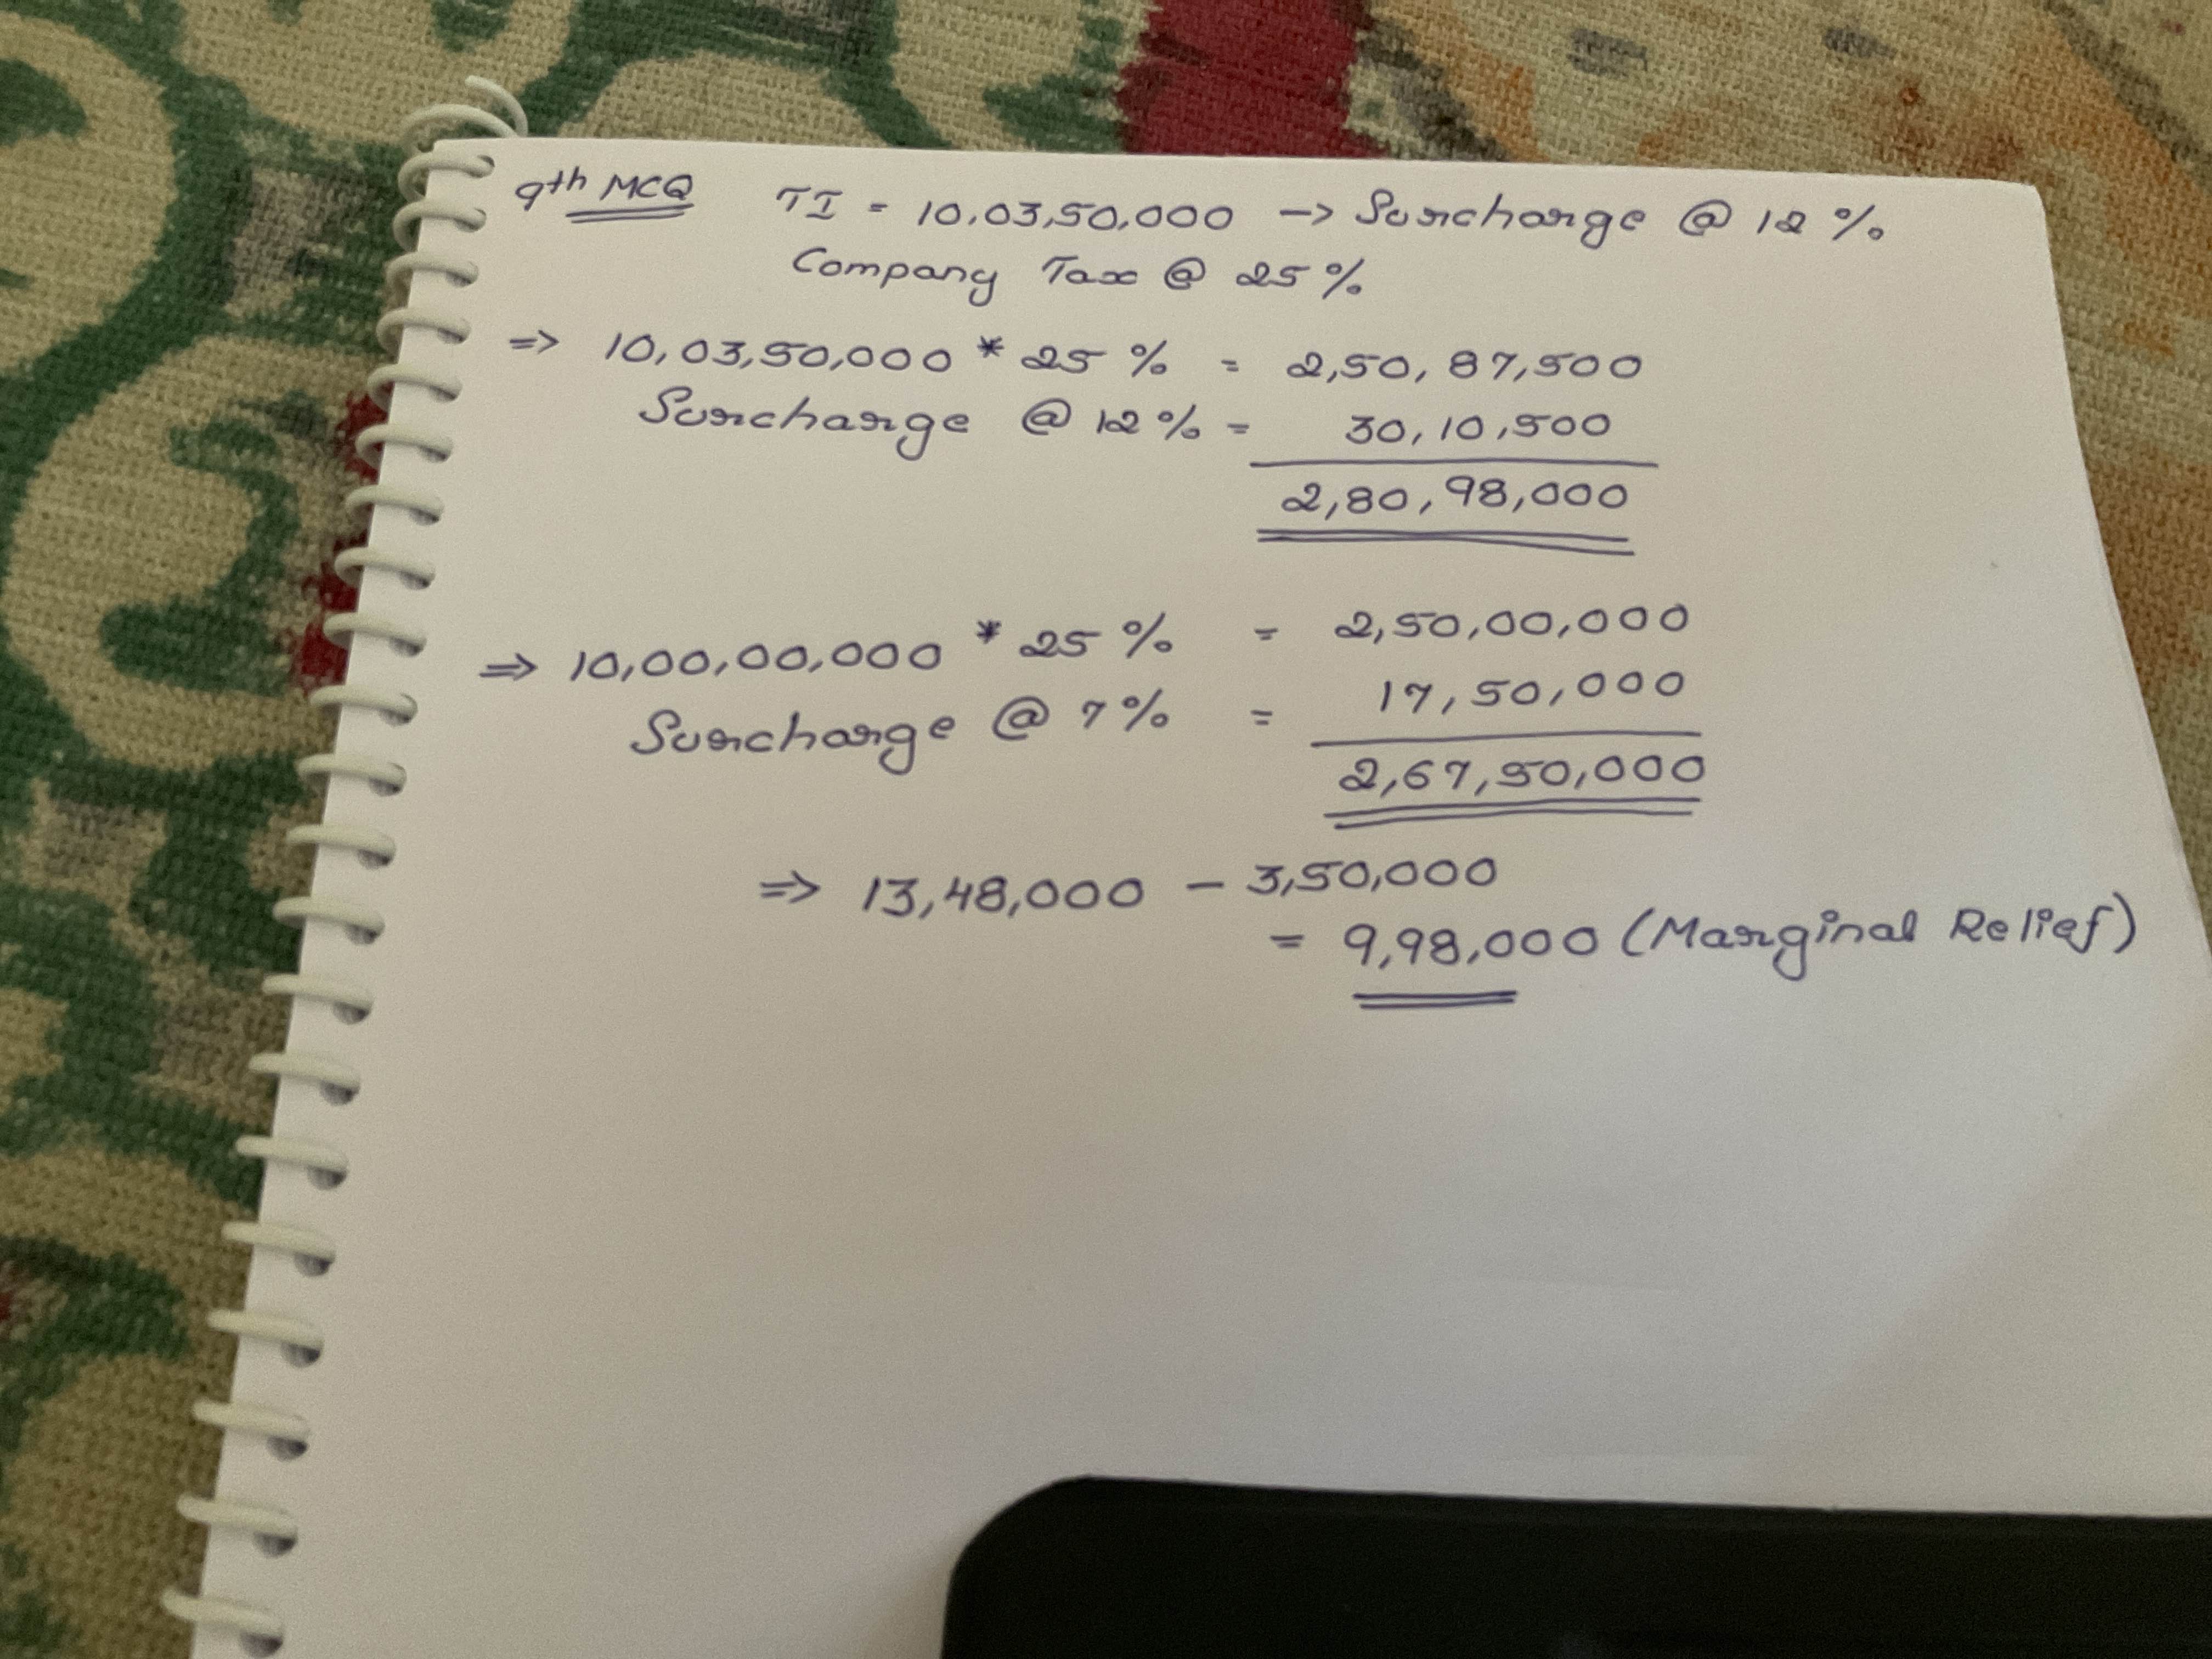 9th MCQ TI = 10,03,50,000 -> Surcharge @ 12 %
Company Tax @ 25 %
=> 10,03,50,000 * 25 % = 2,50,87,500
Surcharge @ 12 % = 30,10,500
2,80,98,000
=> 10,00,00,000 * 25 % = 2,50,00,000
Surcharge @ 7 % = 17,50,000
2,67,50,000
=> 13,48,000 - 3,50,000
= 9,98,000 (Marginal Relief)